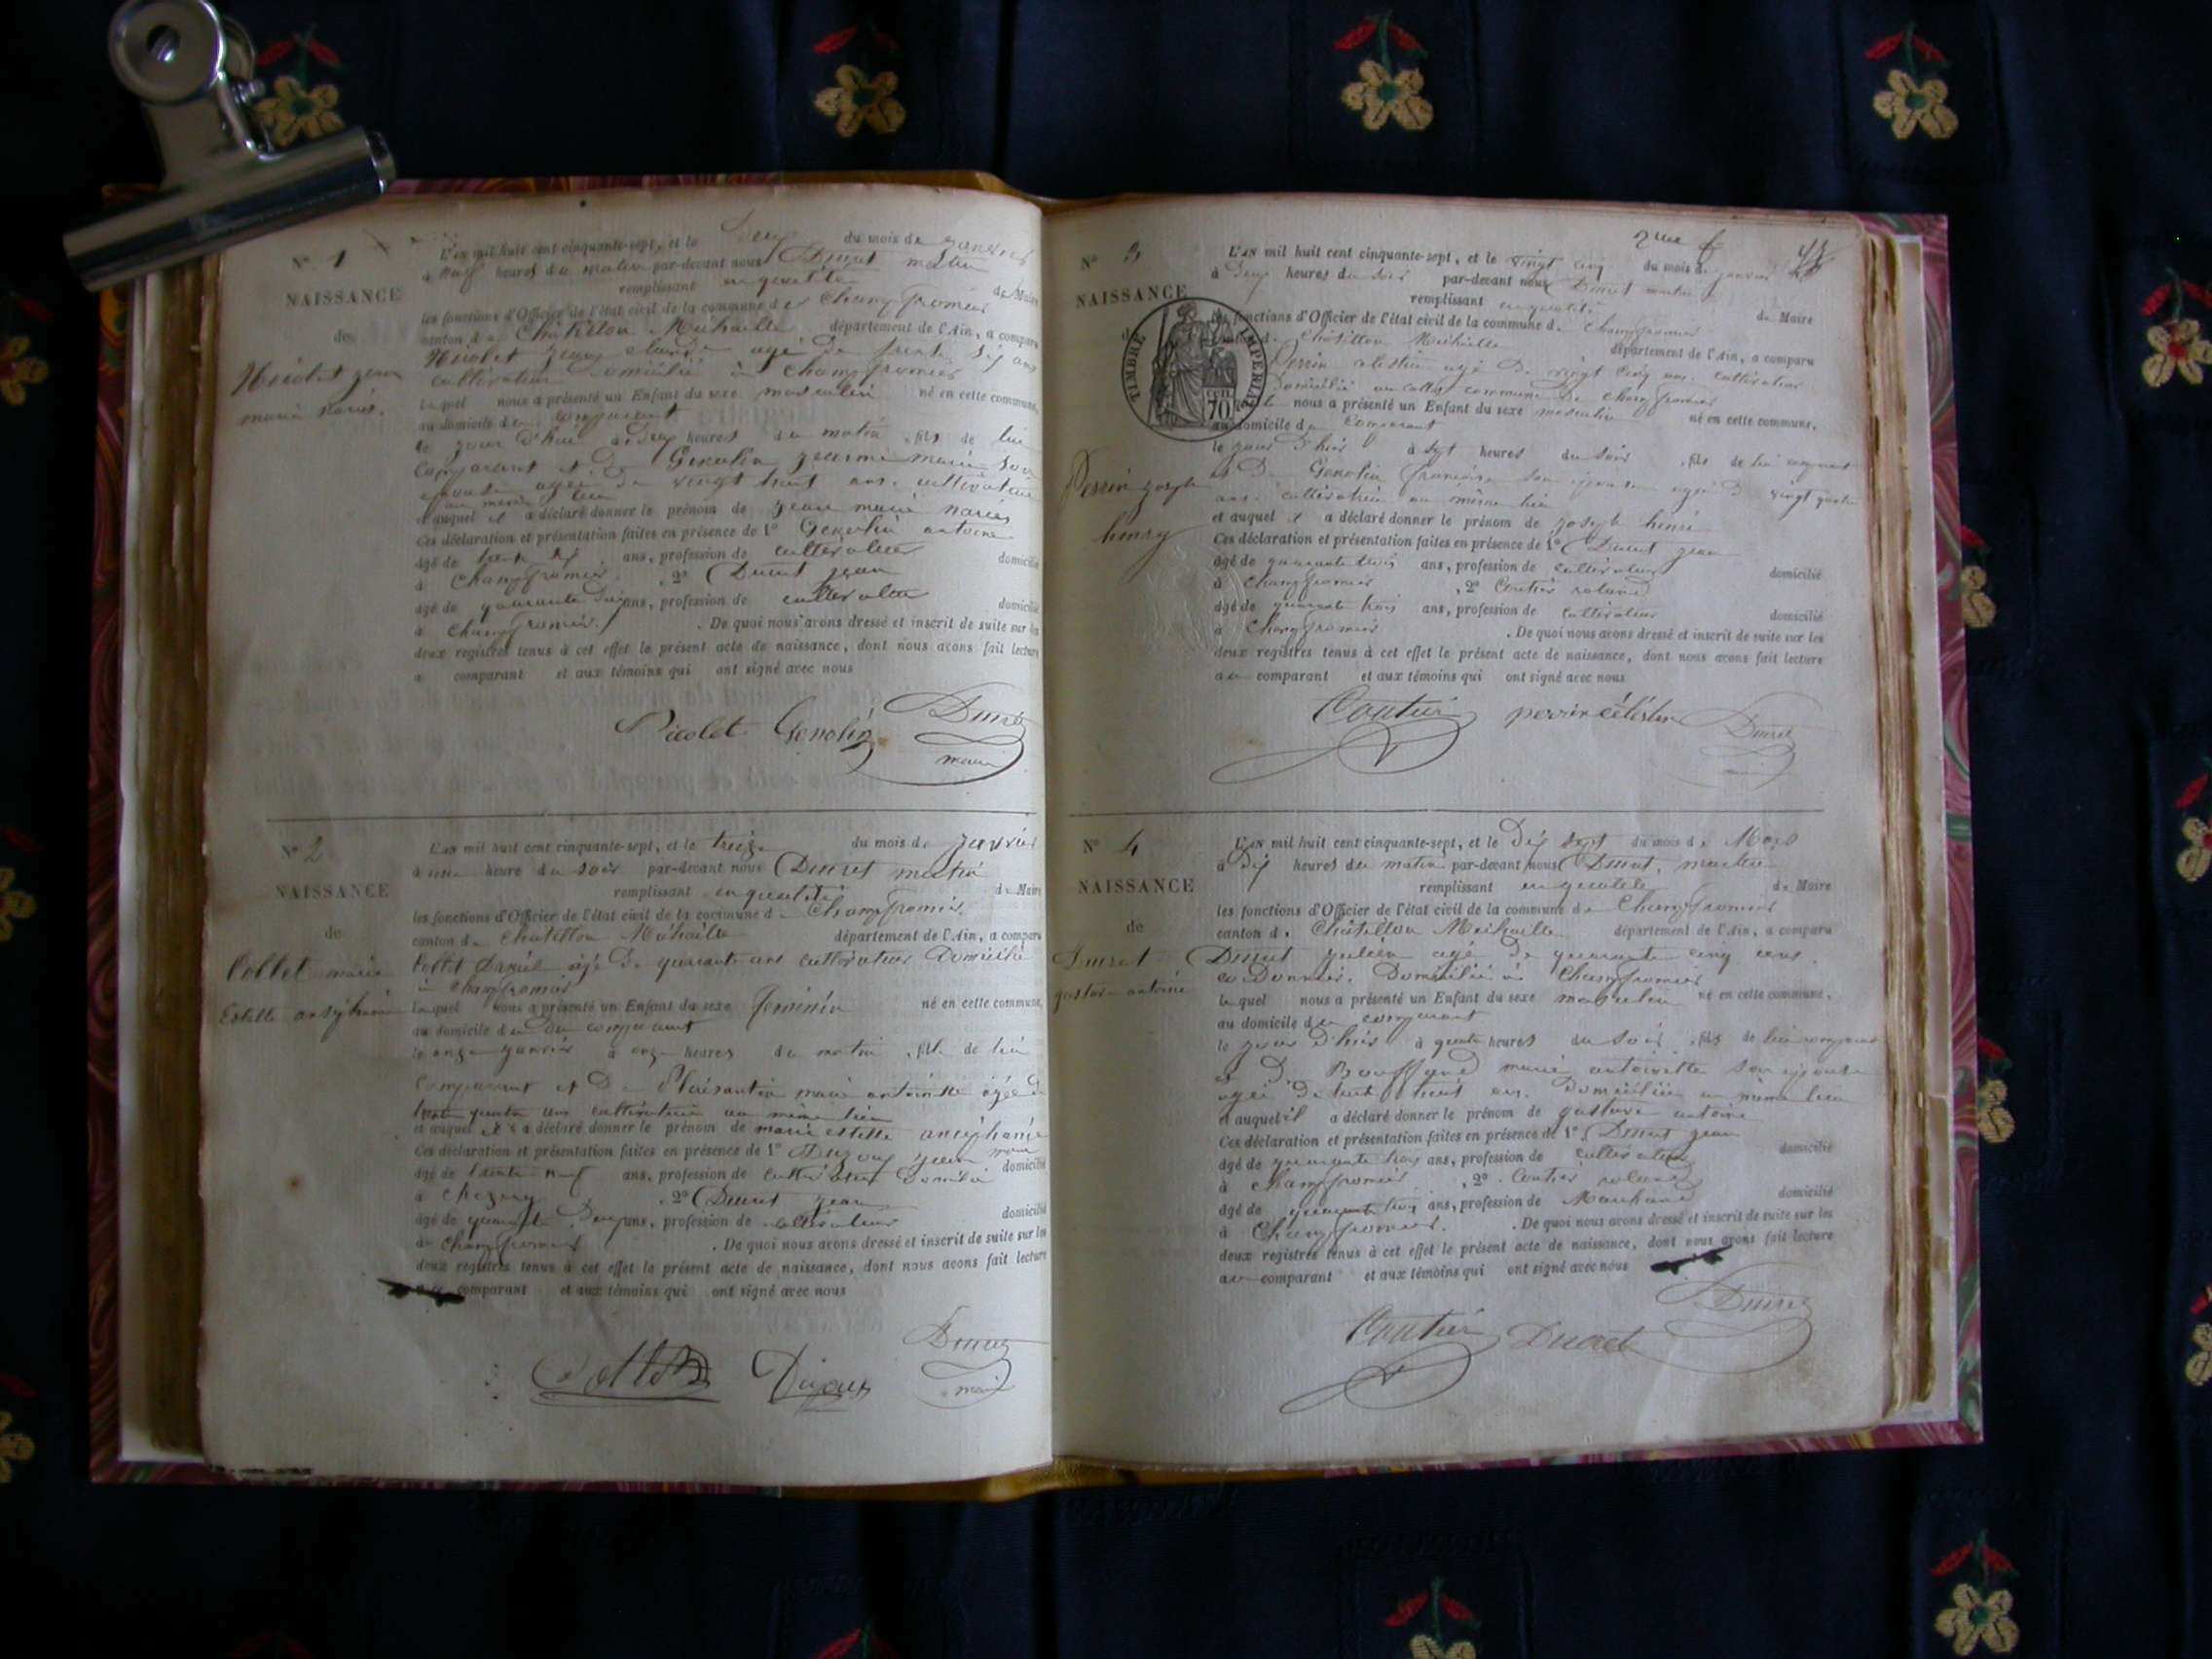 N° 1
NAISSANCE
de
Nicolet jean
marie narcis.
L'an mil huit cent cinquante-sept, et le deux du mois de janvier
à neuf heures du matin par-devant nous Ducret
remplissant en qualité de Maire
les fonctions d'Officier de l'état civil de la commune de Champfromier
canton de Chatillon Michaille département de l'Ain, a comparu
Nicolet jean claude agé de trente six ans
cultivateur domicilié à Champfromier
lequel nous a présenté un Enfant du sexe masculin né en cette commune,
au domicile du comparant
le jour d'hui à heures du matin, fils de lui
comparant et de Genolin jeanne marie son
épouse agée de vingt huit ans. cultivatrice
au même lieu
et auquel il a déclaré donner le prénom de jean marie narcis
Ces déclaration et présentation faites en présence de 1° Genolin antoine
âgé de ans, profession de cultivateur domicilié
à Champfromier, 2° Ducret jean
âgé de quarante deux ans, profession de cultivateur domicilié
à Champfromier. De quoi nous avons dressé et inscrit de suite sur les
deux registres tenus à cet effet le présent acte de naissance, dont nous avons fait lecture
a comparant et aux témoins qui ont signé avec nous
Nicolet Genolin Ducret
maire
N° 2
NAISSANCE
de
Collet marie
Estelle
L'an mil huit cent cinquante-sept, et le treize du mois de janvier
à une heure du soir par-devant nous Ducret
remplissant en qualité de Maire
les fonctions d'Officier de l'état civil de la commune de Champfromier
canton de Chatillon Michaille département de l'Ain, a comparu
Collet Daniel âgé de quarante ans cultivateur domicilié
à Champfromier
lequel nous a présenté un Enfant du sexe féminin né en cette commune,
au domicile du comparant
le onze janvier à onze heures du matin, fille de lui
comparant et de marie antoinette âgée de
trente quatre ans cultivatrice au même lieu
et auquel il a déclaré donner le prénom de marie estelle
Ces déclaration et présentation faites en présence de 1° jean marie
âgé de trente neuf ans, profession de cultivateur domicilié
à Chezery, 2° Ducret jean
âgé de quarante deux ans, profession de cultivateur domicilié
à Champfromier. De quoi nous avons dressé et inscrit de suite sur les
deux registres tenus à cet effet le présent acte de naissance, dont nous avons fait lecture
comparant et aux témoins qui ont signé avec nous
Ducret
maire
2me f
N° 3
NAISSANCE
de
TIMBRE IMPERIAL
70
Perrin joseph
henry
L'an mil huit cent cinquante-sept, et le vingt cinq du mois de janvier
à deux heures du soir par-devant nous Ducret
remplissant en qualité de Maire
les fonctions d'Officier de l'état civil de la commune de Champfromier
canton de Châtillon Michaille département de l'Ain, a comparu
Perrin celestin agé de vingt cinq ans. cultivateur
domicilié commune de Champfromier
nous a présenté un Enfant du sexe masculin né en cette commune,
au domicile du comparant
le jour d'hier à sept heures du soir, fils de lui comparant
et de Genolin françoise son épouse agée de vingt quatre
ans. cultivatrice au même lieu
et auquel il a déclaré donner le prénom de joseph henri
Ces déclaration et présentation faites en présence de 1° Ducret jean
âgé de quarante trois ans, profession de cultivateur domicilié
à Champfromier, 2° Coutier roland
âgé de quarante trois ans, profession de cultivateur domicilié
à Champfromier. De quoi nous avons dressé et inscrit de suite sur les
deux registres tenus à cet effet le présent acte de naissance, dont nous avons fait lecture
au comparant et aux témoins qui ont signé avec nous
Coutier perrin célestin Ducret
N° 4
NAISSANCE
de
Ducret
gustave antoine
L'an mil huit cent cinquante-sept, et le dix sept du mois de Mars
à dix heures du matin par-devant nous Ducret,
remplissant en qualité de Maire
les fonctions d'Officier de l'état civil de la commune de Champfromier
canton de Châtillon Michaille département de l'Ain, a comparu
Ducret julien agé de quarante cinq ans.
cordonnier. Domicilié à Champfromier
lequel nous a présenté un Enfant du sexe masculin né en cette commune,
au domicile du comparant
le jour d'hier à quatre heures du soir, fils de lui comparant
et de marie antoinette son épouse
agée de trente huit ans. domiciliée au même lieu
et auquel il a déclaré donner le prénom de gustave antoine
Ces déclaration et présentation faites en présence de 1° Ducret jean
âgé de quarante trois ans, profession de cultivateur domicilié
à Champfromier, 2° Coutier roland
âgé de quarante trois ans, profession de Marchand domicilié
à Champfromier. De quoi nous avons dressé et inscrit de suite sur les
deux registres tenus à cet effet le présent acte de naissance, dont nous avons fait lecture
au comparant et aux témoins qui ont signé avec nous
Ducret
Coutier Ducret